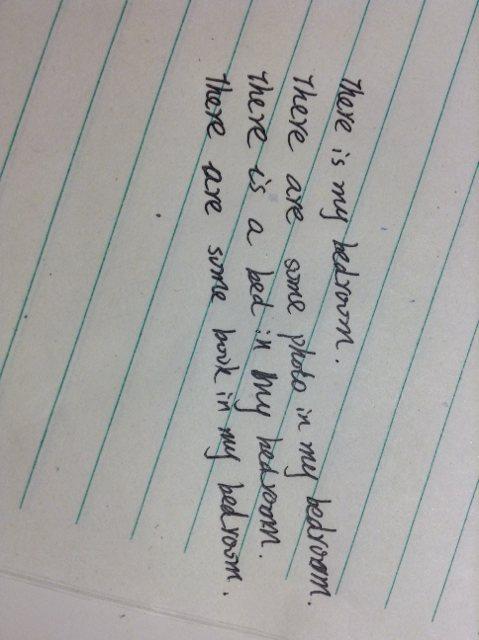 There is my bedroom.
There are some photo in my bedroom.
There is a bed in my bedroom.
There are some book in my bedroom.